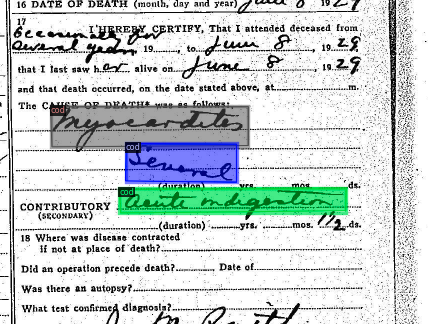 16 DATE OF DEATH (month, day and year) June 8 1929
17 I HEREBY CERTIFY, That I attended deceased from
occasionally for
several years 19, to June 8, 1929,
that I last saw her alive on June 8, 1929
and that death occurred, on the date stated above, at m.
The CAUSE OF DEATH* was as follows:
cod
Myocarditis
cod
Several
(duration) yrs. mos. ds.
cod
CONTRIBUTORY acute indigestion
(SECONDARY)
(duration) yrs. mos. 1 1/2 ds.
18 Where was disease contracted
if not at place of death?
Did an operation precede death? Date of
Was there an autopsy?
What test confirmed diagnosis?